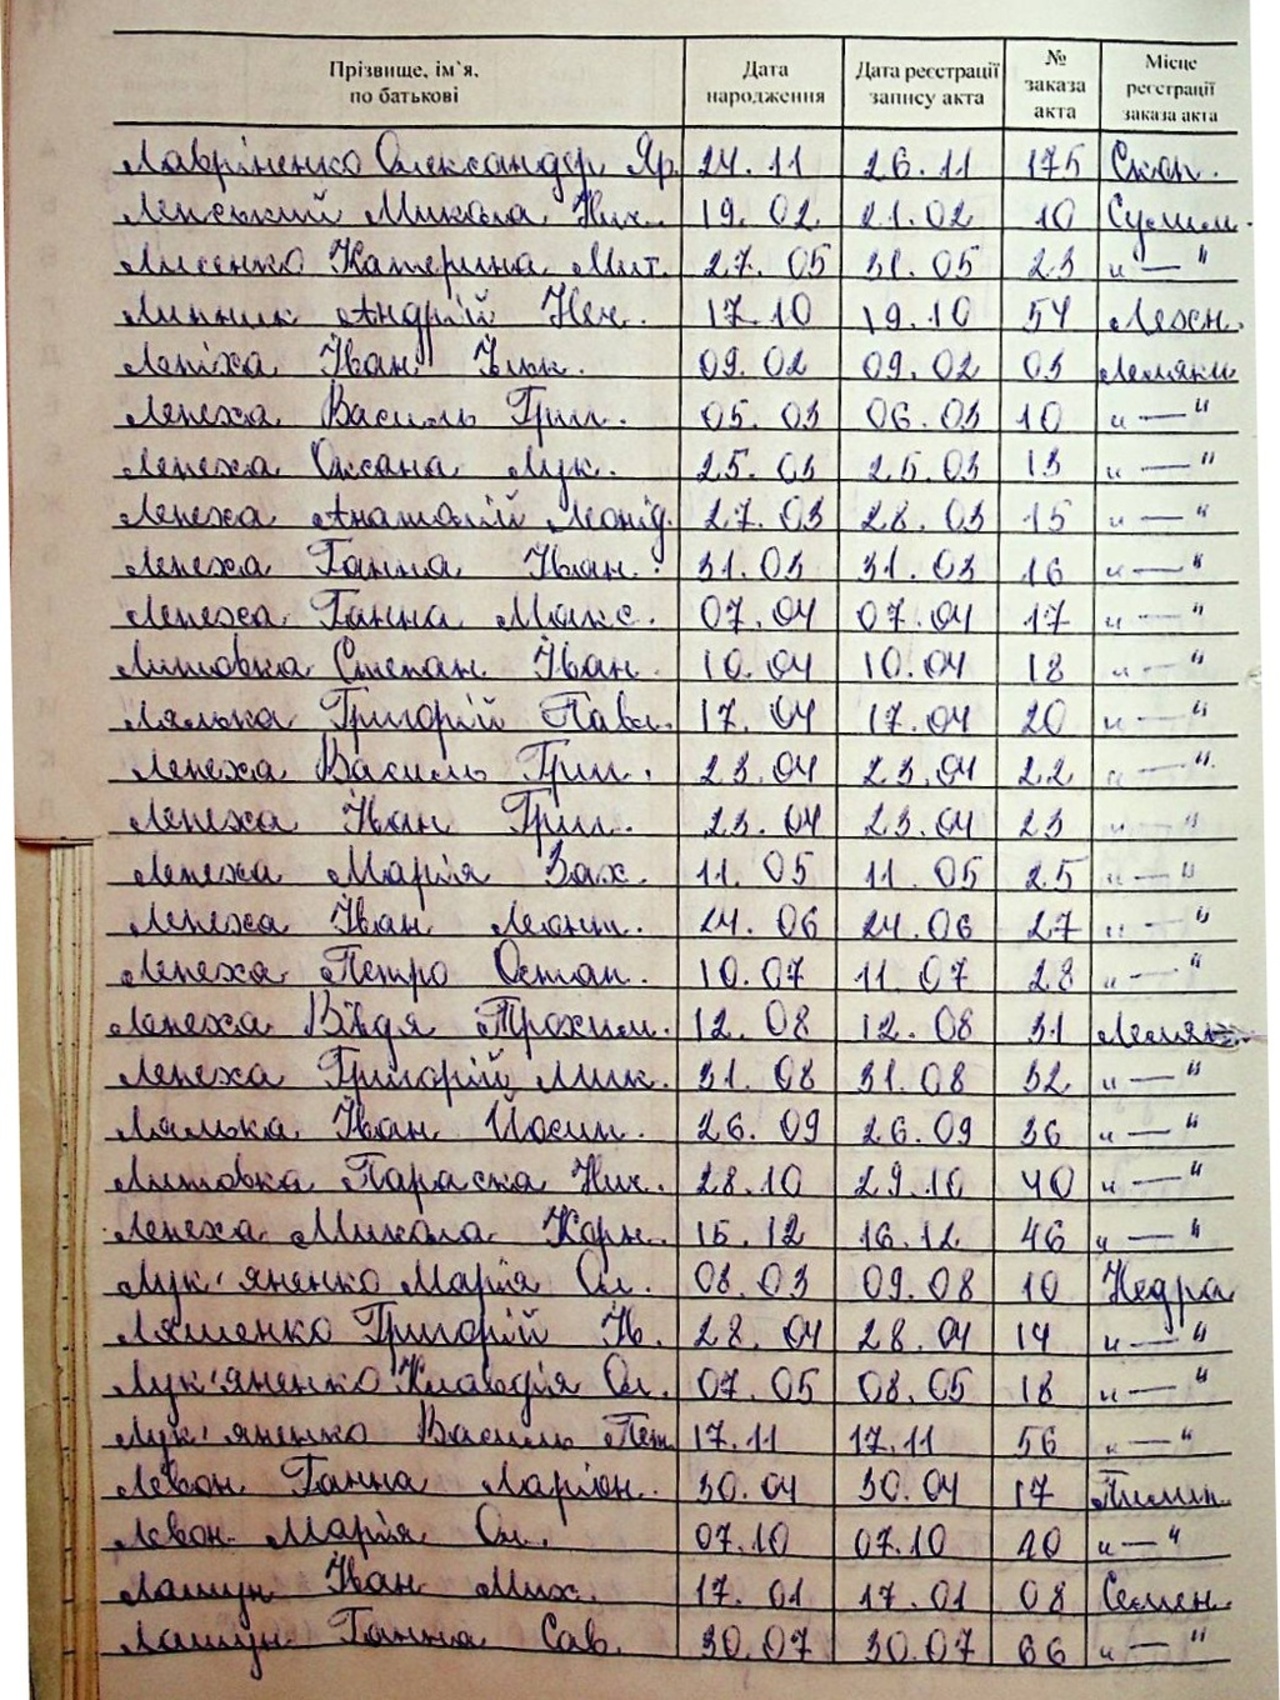 Прізвище, ім`я, по батькові Дата народження Дата реєстрації запису акта № заказа акта Місце реєстрації заказа акта
Лавріненко Олександр Яр. 24.11 26.11 175 Скоп.
Ленський Микола Ник. 19.02 21.02 10 Сулим.
Лисенко Катерина Мит. 27.05 31.05 23 "—"
Линник Андрій Неч. 17.10 19.10 54 Лехн.
Лепіха Іван 09.02 09.02 03 Лемяки
Лепеха Василь Григ. 05.03 06.03 10 "—"
Лепеха Оксана Лук. 25.03 25.03 13 "—"
Лепеха Анатолій Леонід. 27.03 28.03 15 "—"
Лепеха Ганна Іван. 31.03 31.03 16 "—"
Лепеха Ганна Макс. 07.04 07.04 17 "—"
Литовка Степан Іван. 10.04 10.04 18 "—"
Лялька Григорій Павл. 17.04 17.04 20 "—"
Лепеха Василь Григ. 23.04 23.04 22 "—"
Лепеха Іван Григ. 23.04 23.04 23 "—"
Лепеха Марія Зах. 11.05 11.05 25 "—"
Лепеха Іван Леонт. 24.06 24.06 27 "—"
Лепеха Петро Остап. 10.07 11.07 28 "—"
Лепеха Вівдя Трохим. 12.08 12.08 31 Лемяк
Лепеха Григорій Мик. 31.08 31.08 32 "—"
Лялька Іван Йосип. 26.09 26.09 36 "—"
Литовка Параска Ник. 28.10 29.10 40 "—"
Лепеха Микола Корн. 15.12 16.12 46 "—"
Лук'яненко Марія Ол. 08.03 09.08 10 Недра
Ляшенко Григорій Ів. 28.04 28.04 14 "—"
Лук'яненко Клавдія Ол. 07.05 08.05 18 "—"
Лук'яненко Василь Пет. 17.11 17.11 56 "—"
Левон Ганна Ларіон. 30.04 30.04 17 Пилип.
Левон Марія Ол. 07.10 07.10 20 "—"
Лашун Іван Мих. 17.01 17.01 08 Семен.
Лашун Ганна Сав. 30.07 30.07 66 "—"